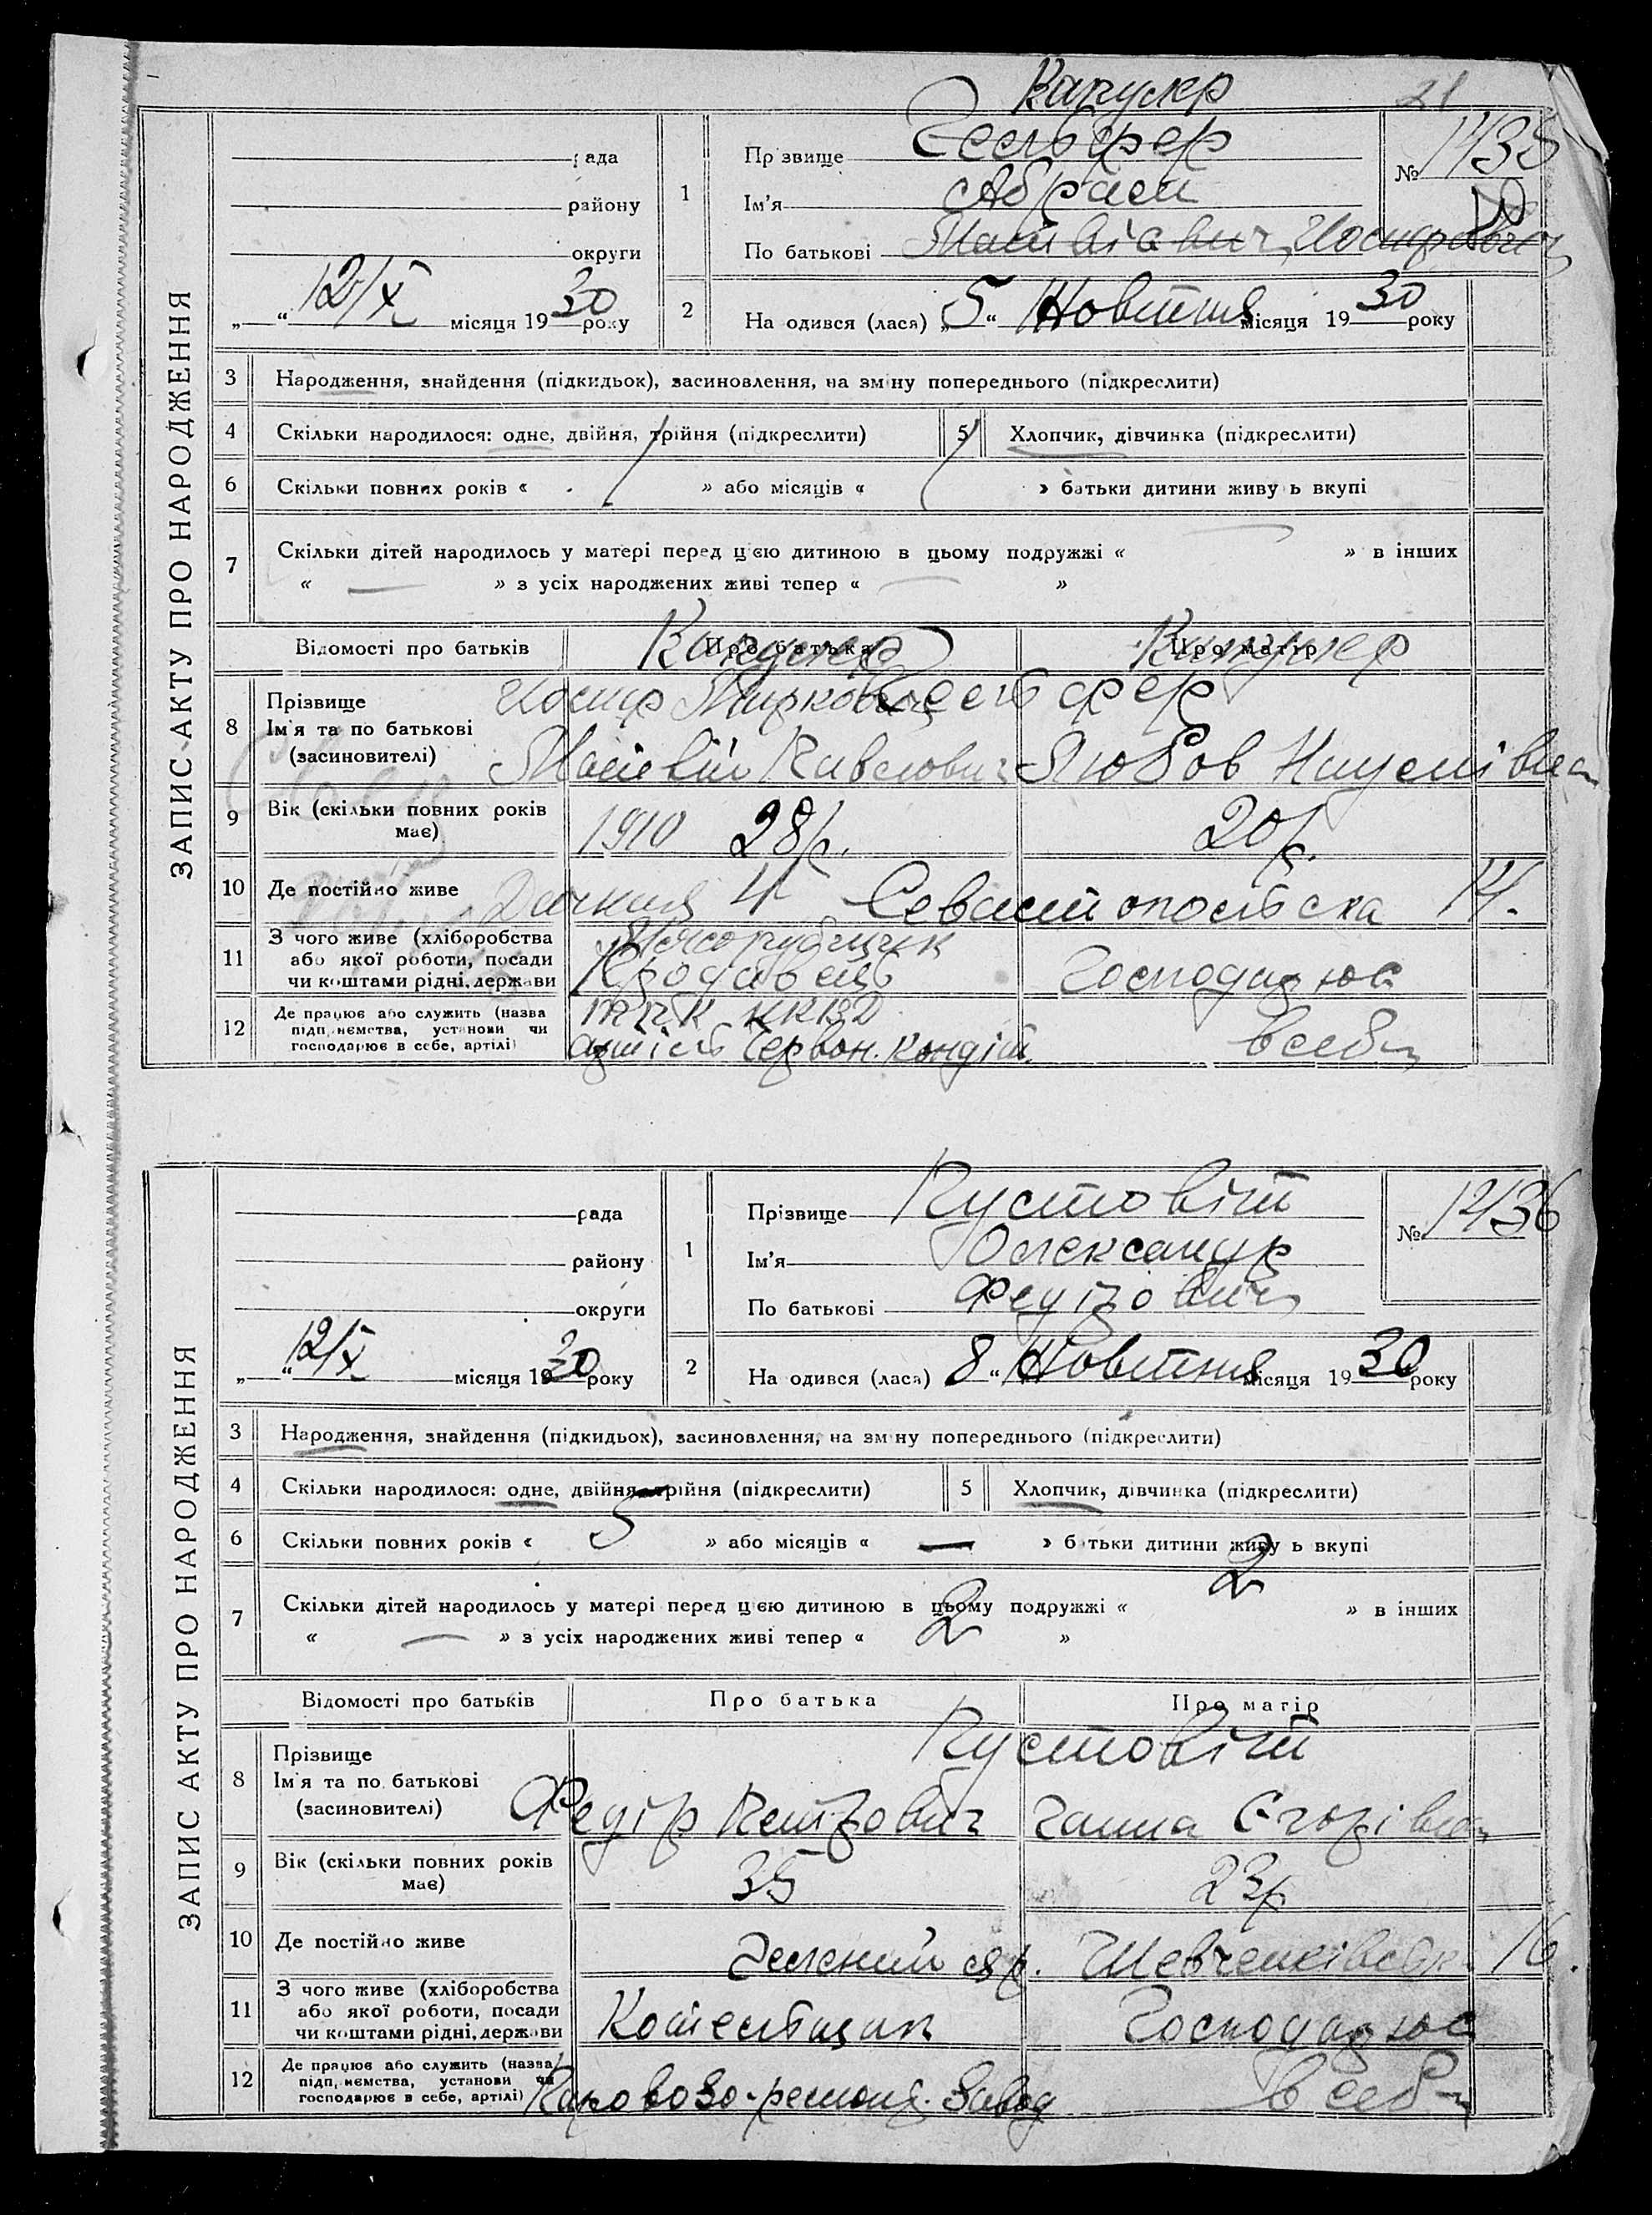 Капулер
21
ЗАПИС АКТУ ПРО НАРОДЖЕННЯ
рада
району
округи
12/X місяця 1930 року
1
Прізвище Гельфер
Ім'я Абрам
По батькові Матвієвич Иосифович
№ 1435
2
На одився (лася) „5“ Жовтня місяця 1930 року
3 Народження, знайдення (підкидьок), засиновлення, на зміну попереднього (підкреслити)
4 Скільки народилося: одне, двійня, трійня (підкреслити) 5 Хлопчик, дівчинка (підкреслити)
6 Скільки повних років « » або місяців « » батьки дитини живуть вкупі
7 Скільки дітей народилось у матері перед цією дитиною в цьому подружжі « » в інших
« — » з усіх народжених живі тепер « — »
Відомості про батьків Про батька Про матір
Капулер Капулер
8 Прізвище
Ім'я та по батькові
(засиновителі)
Иосиф Гельфер
Матвій Павлович Любов Наумівна
9 Вік (скільки повних років має) 1910 28р. 20р.
10 Де постійно живе 4 Севастопольска 14.
11 З чого живе (хліборобства
або якої роботи, посади
чи коштами рідні, держави
Продавець Господарює
12 Де працює або служить (назва
підприємства, установи чи
господарює в себе, артілі)
НКВД
артіль Червон. Кондіт. в себе
ЗАПИС АКТУ ПРО НАРОДЖЕННЯ
рада
району
округи
12/X місяця 1930 року
1
Прізвище Пустовіт
Ім'я Олександр
По батькові Федірович
№ 1436
2
На одився (лася) 8 “ Жовтня місяця 1930 року
3 Народження, знайдення (підкидьок), засиновлення, на зміну попереднього (підкреслити)
4 Скільки народилося: одне, двійня, трійня (підкреслити) 5 Хлопчик, дівчинка (підкреслити)
6 Скільки повних років « 5 » або місяців « — » батьки дитини живуть вкупі
7 Скільки дітей народилось у матері перед цією дитиною в цьому подружжі « 2 » в інших
« — » з усіх народжених живі тепер « 2 »
Відомості про батьків Про батька Про матір
8 Прізвище
Ім'я та по батькові
(засиновителі)
Пустовіт
Федір Петрович Ганна Єгорівна
9 Вік (скільки повних років має) 35 23р
10 Де постійно живе Шевченківськ. 16.
11 З чого живе (хліборобства
або якої роботи, посади
чи коштами рідні, держави
Котельщик Господарює
12 Де працює або служить (назва
підприємства, установи чи
господарює в себе, артілі)
Паровозо-ремонт. Завод в себе